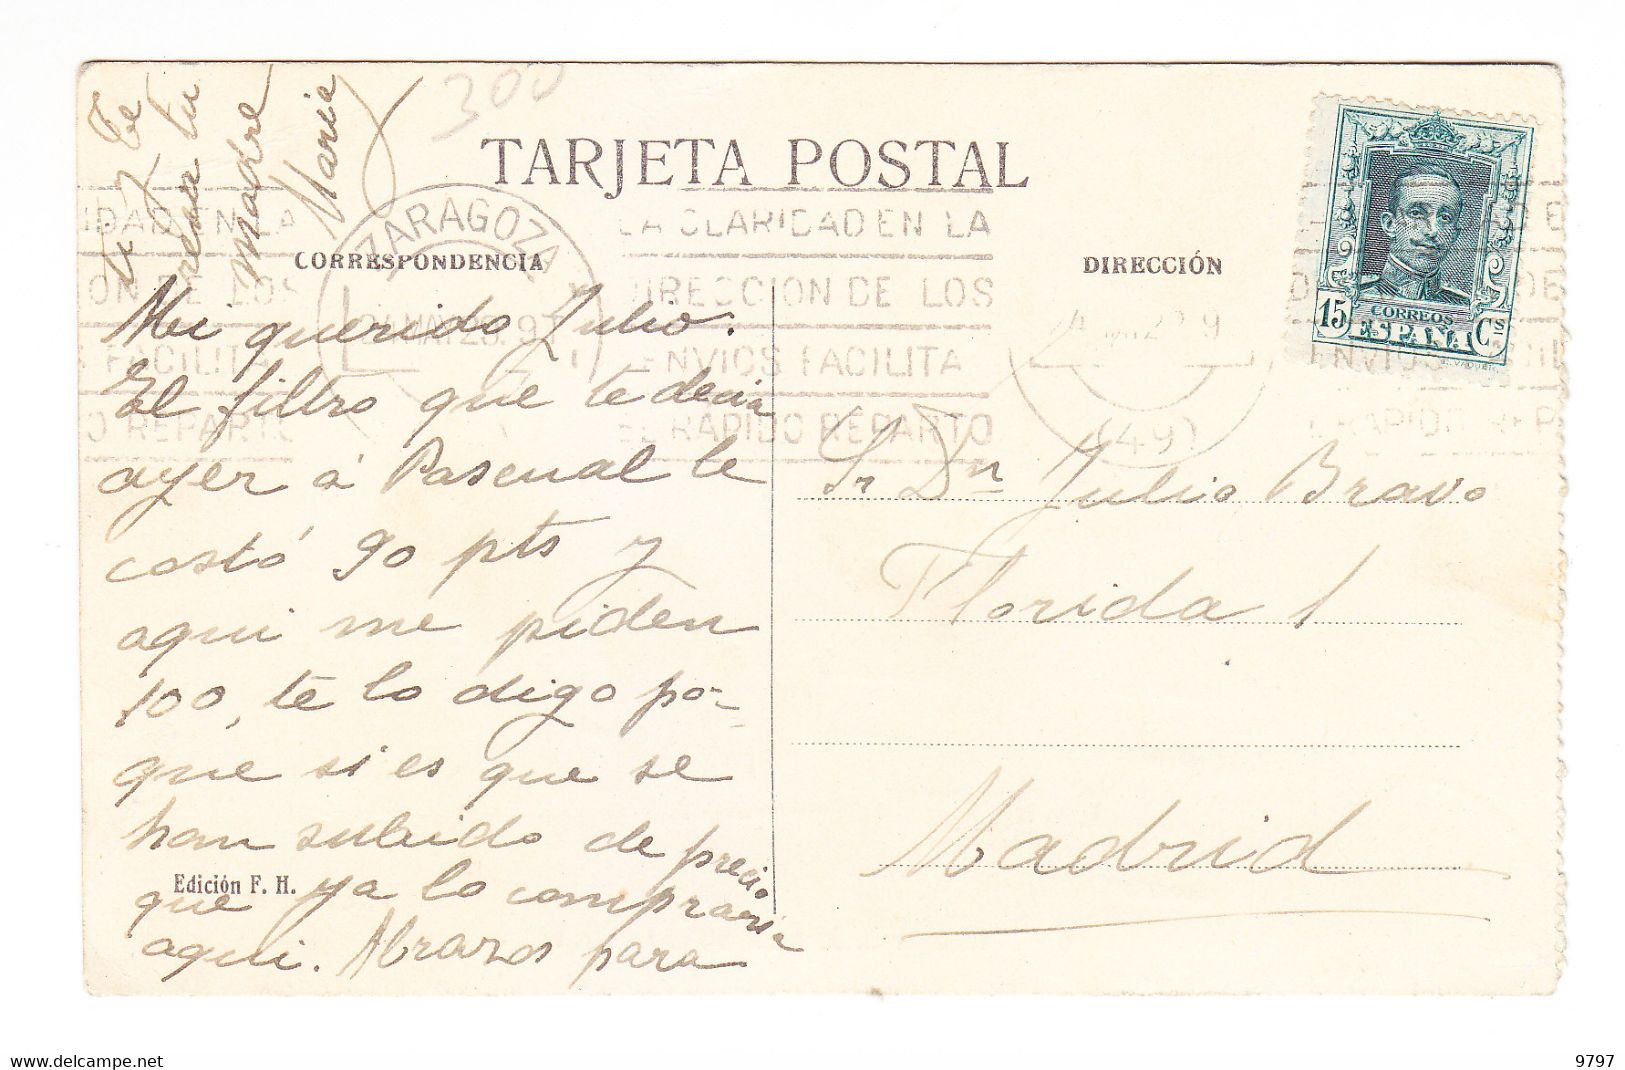 300
TARJETA POSTAL
CORRESPONDENCIA
DIRECCIÓN
ZARAGOZA
LA CLARIDAD EN LA
DIRECCION DE LOS
ENVIOS FACILITA
EL RAPIDO REPARTO
(49)
15 Cs
CORREOS
ESPAÑA
Mi querido Julio:
El filtro que te decia
ayer á Pascual le
costó 90 pts y
aqui me piden
100, te lo digo po-
que si es que se
han subido de precio
que ya lo compraria
aqui. Abrazos para
Te
tu
madre
Maria
Sr Dn Julio Bravo
Florida 1
Madrid
Edición F. H.
www.delcampe.net
9797